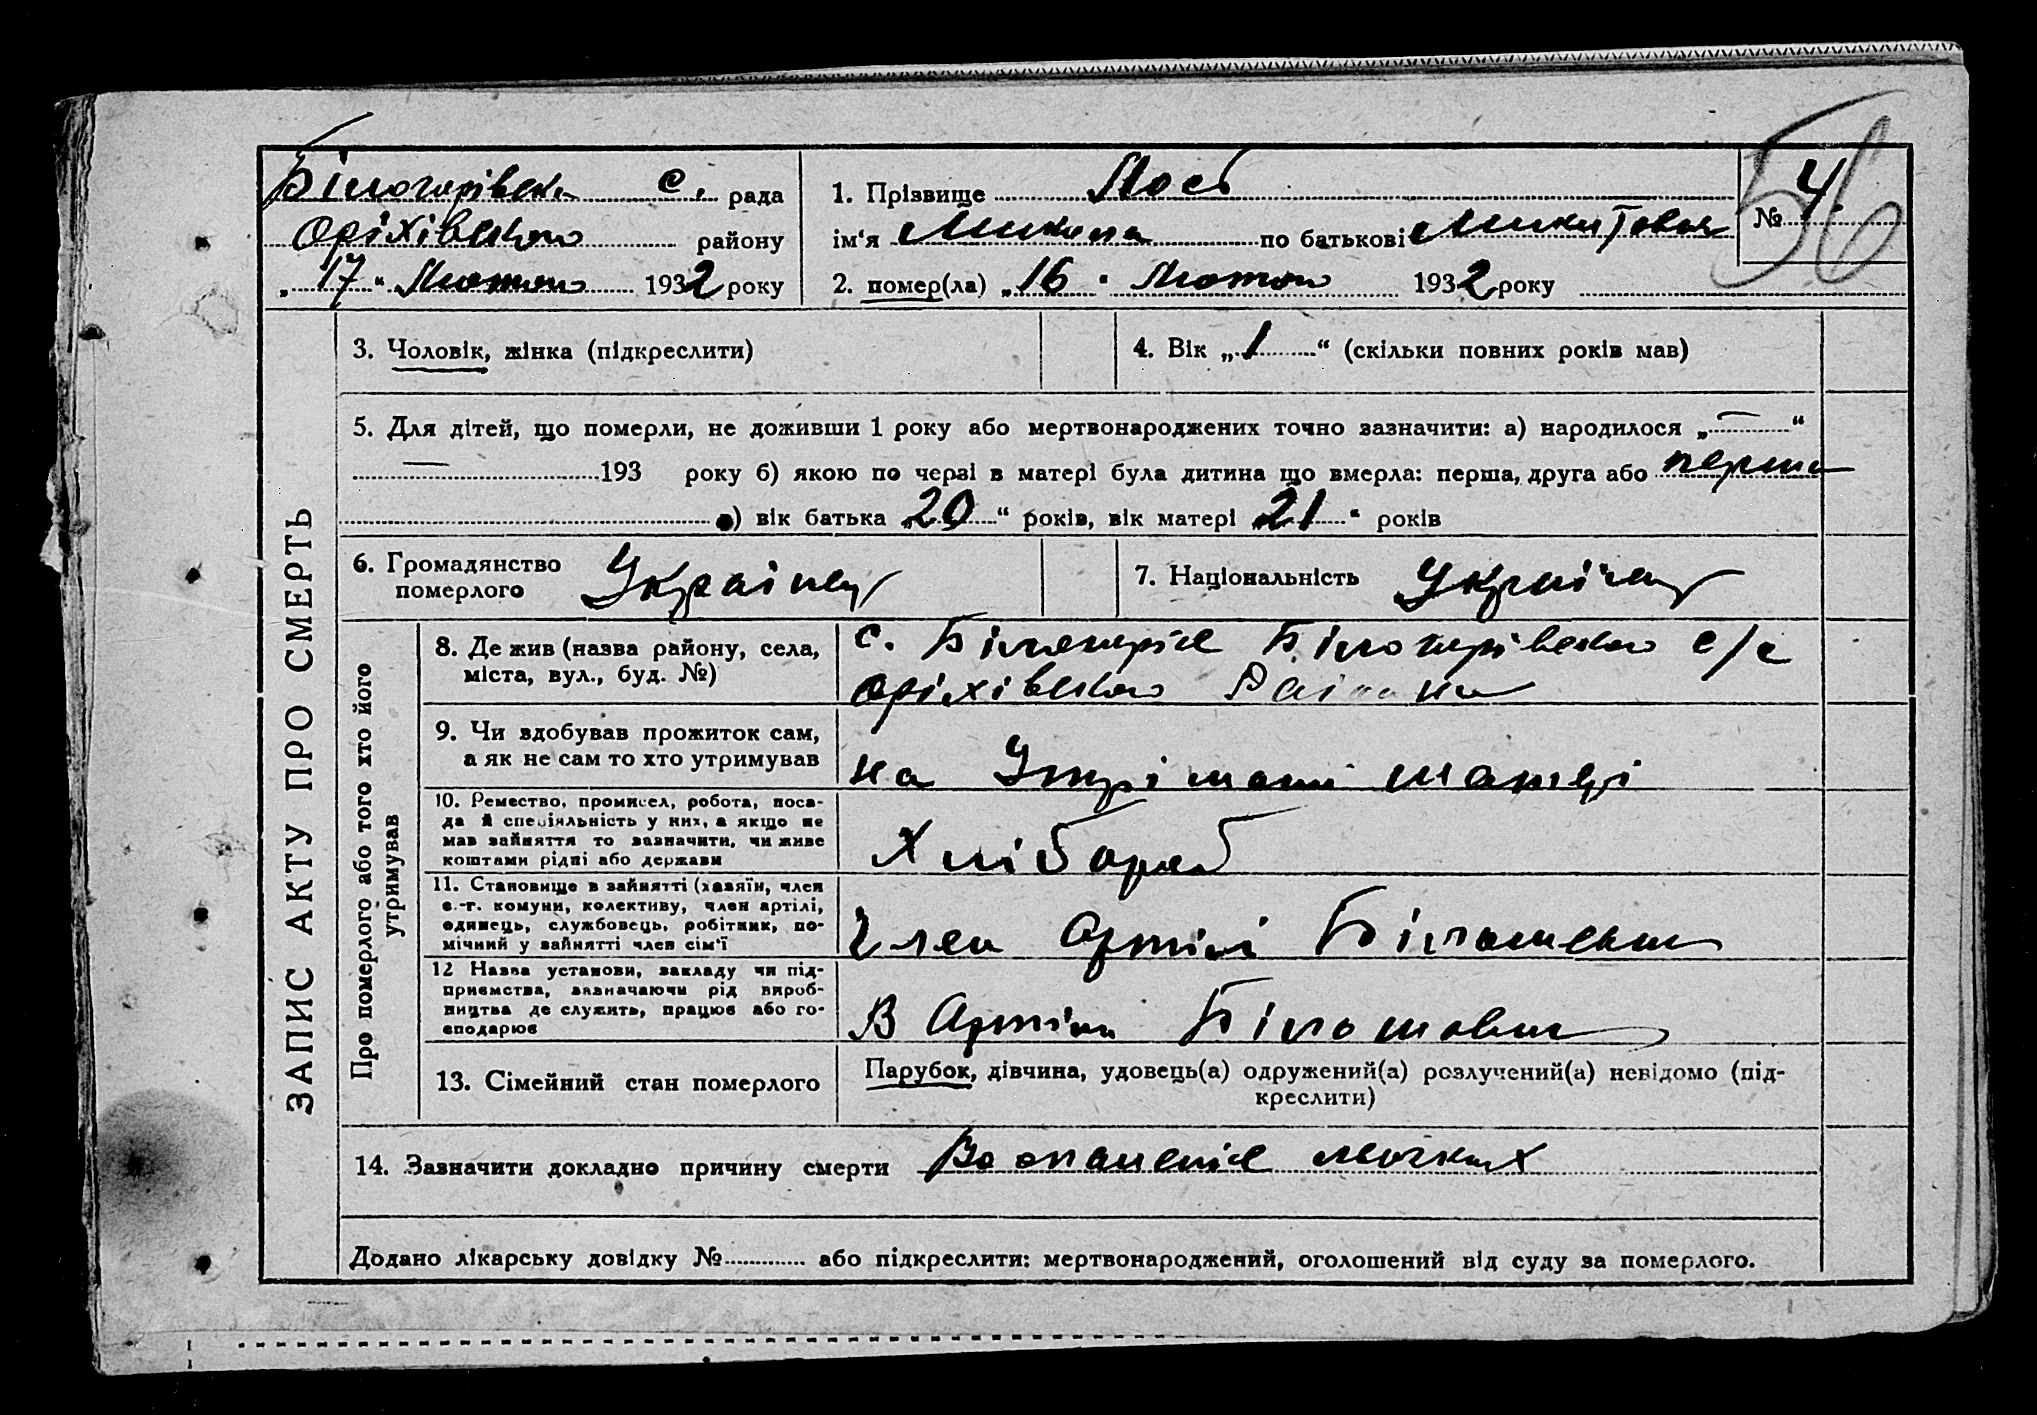 Білогорівськ. с. рада
Оріхівського району
„17“ Лютого 1932 року
1. Прізвище
ім‘я Микола по батькові Микитович
2. помер(ла) „16“ Лютого 1932 року
№ 4.
56
ЗАПИС АКТУ ПРО СМЕРТЬ
3. Чоловік, жінка (підкреслити)
4. Вік „1“ (скільки повних років мав)
5. Для дітей, що померли, не доживши 1 року або мертвонароджених точно зазначити: а) народилося „—“
— 193 року б) якою по черзі в матері була дитина що вмерла: перша, друга або перша
в) вік батька „20“ років, вік матері „21“ років
6. Громадянство
померлого Українец
7. Національність Українец
Про померлого або того хто його
утримував
8. Де жив (назва району, села,
міста, вул., буд. №)
с. Білогоріє Білогорівського с/с
Оріхівського Района
9. Чи вдобував прожиток сам,
а як не сам то хто утримував
на Утрімані матері
10. Ремество, промисел, робота, поса-
да й спеціяльність у них, а якщо не
мав зайняття то зазначити, чи живе
коштами рідні або держави
Хлібороб
11. Становище в зайнятті (хазяїн, член
с.-г. комуни, колективу, член артілі,
одинець, службовець, робітник, по-
мічний у зайнятті член сім‘ї
Член Артілі
12 Назва установи, закладу чи під-
приємства, зазначаючи рід вироб-
ництва де служить, працює або го-
сподарює
В Артілі
13. Сімейний стан померлого
Парубок, дівчина, удовець(а) одружений(а) розлучений(а) невідомо (під-
креслити)
14. Зазначити докладно причину смерти Воспаленіє льогких
Додано лікарську довідку № або підкреслити: мертвонароджений, оголошений від суду за померлого.